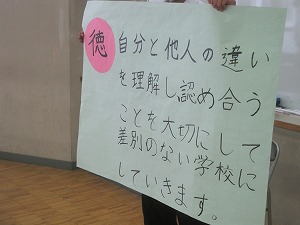 徳
自分と他人の違い
を理解し認め合う
ことを大切にして
差別のない学校に
していきます。